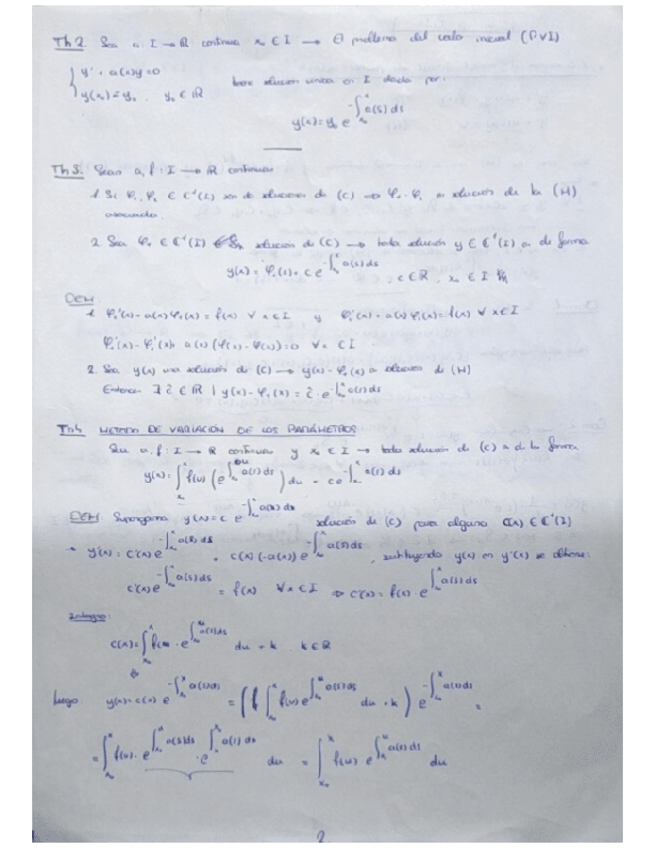 Th 2. Sea a: I → ℝ continua x₀ ∈ I → El problema del valor inicial (PVI)
{ y' + a(x)y = 0
y(x₀) = y₀, y₀ ∈ ℝ tiene solución única en I dada por:
y(x) = y₀ e^{-∫_{x₀}^{x} a(s) ds}
Th 3. Sean a, f: I → ℝ continuas
1. Si φ₁, φ₂ ∈ C¹(I) son de soluciones de (C) → φ₂ - φ₁ es solución de la (H)
asociada.
2. Sea φ₁ ∈ C¹(I) solución de (C) → toda solución y ∈ C¹(I) es de forma
y(x) = φ₁(x) + c e^{-∫_{x₀}^{x} a(s) ds}, c ∈ ℝ, x₀ ∈ I
DEM:
1. φ₂'(x) + a(x)φ₂(x) = f(x) ∀ x ∈ I y φ₁'(x) + a(x)φ₁(x) = f(x) ∀ x ∈ I
φ₂'(x) - φ₁'(x) + a(x)(φ₂(x) - φ₁(x)) = 0 ∀x ∈ I
2. Sea y(x) una solución de (C) → y(x) - φ₁(x) es solución de (H)
Entonces ∃ c̃ ∈ ℝ | y(x) - φ₁(x) = c̃ · e^{-∫_{x₀}^{x} a(s) ds}
Th4 METODO DE VARIACIÓN DE LOS PARÁMETROS
Sea a, f: I → ℝ continuas y x₀ ∈ I → toda solución de (C) es de la forma
y(x) = ∫_{x₀}^{x} f(u) (e^{∫ a(s) ds}) du + c e^{-∫_{x₀}^{x} a(s) ds}
DEM Supongamos y(x) = c e^{-∫_{x₀}^{x} a(s) ds} solución de (C) para alguna C(x) ∈ C¹(I)
y'(x) = c'(x) e^{-∫_{x₀}^{x} a(s) ds} + c(x)(-a(x)) e^{-∫_{x₀}^{x} a(s) ds}, sustituyendo y(x) en y'(x) se obtiene:
c'(x) e^{-∫_{x₀}^{x} a(s) ds} = f(x) ∀x ∈ I ⇒ c'(x) = f(x) · e^{∫_{x₀}^{x} a(s) ds}
Integro:
c(x) = ∫_{x₀}^{x} f(u) · e^{∫_{x₀}^{u} a(s) ds} du + k k ∈ ℝ
luego y(x) = c(x) e^{-∫_{x₀}^{x} a(s) ds} = (∫_{x₀}^{x} f(u) e^{∫_{x₀}^{u} a(s) ds} du + k) e^{-∫_{x₀}^{x} a(s) ds} =
= ∫_{x₀}^{x} f(u) · e^{∫_{x₀}^{u} a(s) ds} · e^{∫ a(s) ds} du = ∫_{x₀}^{x} f(u) e^{∫ a(s) ds} du
2